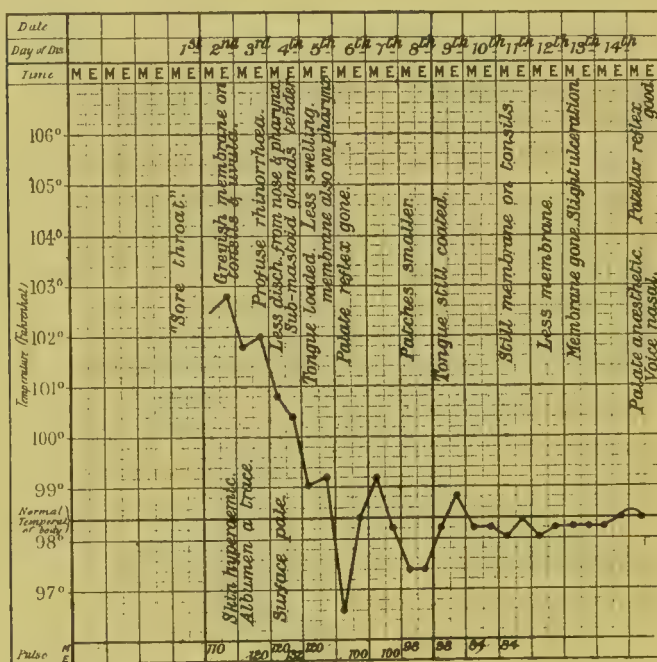 Date
Day of Dis 1st 2nd 3rd 4th 5th 6th 7th 8th 9th 10th 11th 12th 13th 14th
Time M E M E M E M E M E M E M E M E M E M E M E M E M E M E M E M E M E
Temperature (Fahrenheit)
106°
105°
104°
103°
102°
101°
100°
99°
Normal
Temperat.
of body
98°
97°
"Sore throat".
Greyish membrane on
tonsils & uvula.
Profuse rhinorrhœa.
Less disch. from nose & pharynx
Sub-mastoid glands tender
Tongue loaded. Less swelling.
membrane also on pharynx
Palate reflex gone.
Patches smaller.
Tongue still coated.
Still membrane on tonsils.
Less membrane.
Membrane gone. Slight ulceration
Palate anæsthetic. Patellar reflex
good.
Voice nasal.
Skin hyperæmic.
Albumen a trace.
Surface pale.
Pulse M 110 120 120 96 88 84 84
E 120 132 100 100